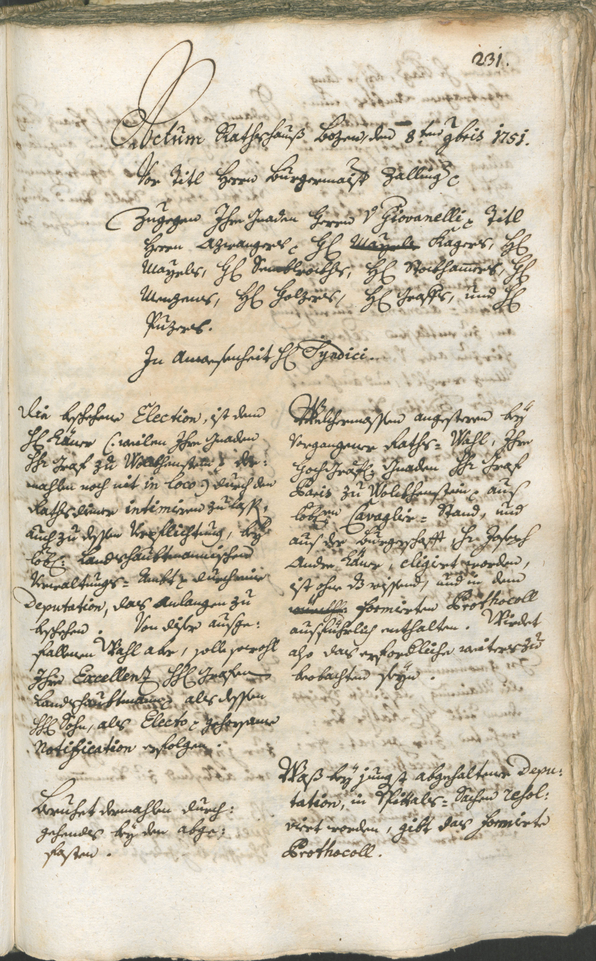 231.
Actum Rathshauß Bozen, den 8.ten 9bris 1751.
Vor Titl Herrn Burgermaist. Zallinger
Zugegen Ihro Gnaden Herrn v Giovanelli, Titl
Herrn Azwangers, H: Kagers, H:
Mayrls, H: H: Rockhamers, H:
Menzens, H: Holzers, H: Graffs, und H:
Puzers.
In Anwesenheit H: Syndici.
Die beschehene Election, ist dem
H: Käure (: weilen Ihro Gnaden
H: Graf zu Wolkhenstein der-
mahlen noch nit in loco :) durch den
Rathsdiener intimiren zu lass.
auch zu dessen Verpflichtung, bey
löbl: Landtshaubtmannischen
Verwaltungs-Ambt durch eine
Deputation, das Anlangen zu
beschehen. Von diser ausge-
fallenen Wahl aber, solle sowohl
Ihro Excellenz H: Grafen
Landtshaubtmann, als dessen
H: Sohn, als Electo, gehorsame
Notification erfolgen.
Beruhet dermahlen durch-
gehendts bey dem abge-
fasten.
Welchermassen angestern bey
vergangener Raths-Wahl, Ihro
Hochgräfl: Gnaden H: Graf
Paris zu Wolckhenstein, aus
löbl: Cavaglier-Stand, und
aus der Burgerschafft H: Joseph
Andre Käure, eligirt worden,
ist ohne deme wissend, und in dem
formirten Prothocoll
ausführlich enthalten. Wirdet
also das erforderliche weiters zu
beobachten seyn.
Waß bey jungst abgehaltener Depu-
tation, in Spittals-Sachen resol-
virt worden, gibt das formirte
Prothocoll.